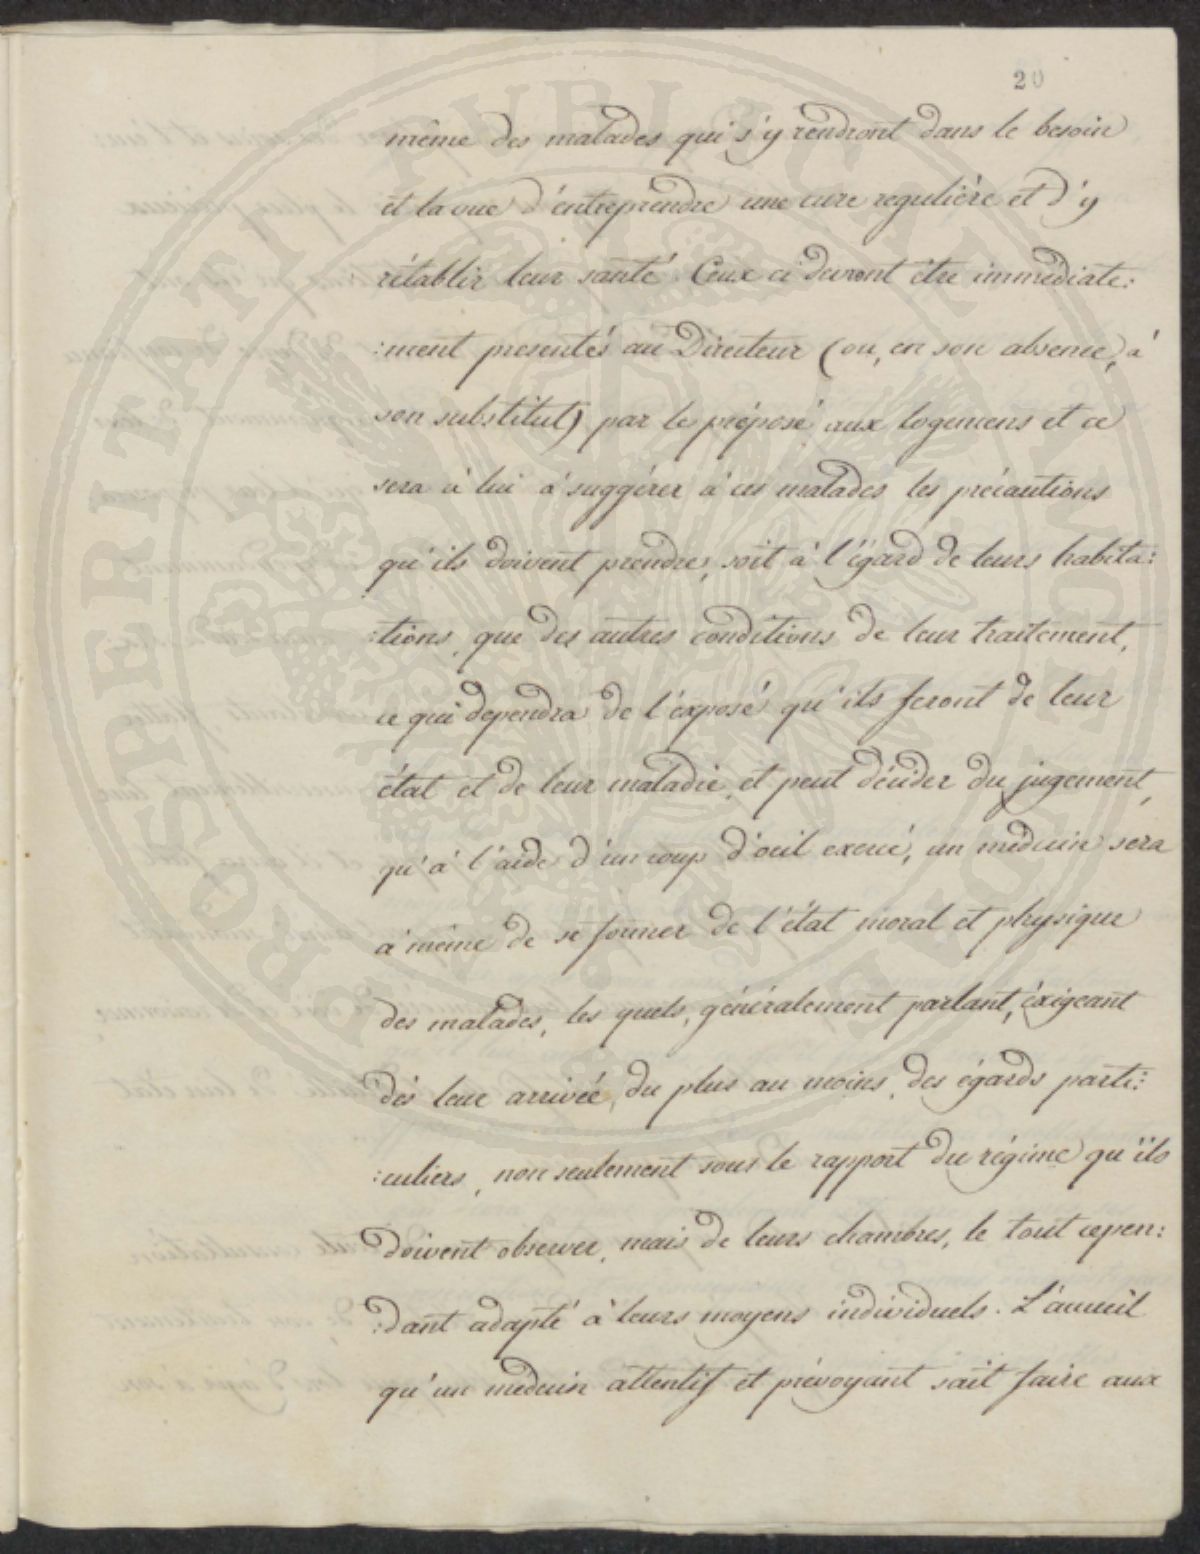 20
même des malades qui s'y rendront dans le besoin
et la vue d'entreprendre une cure regulière et d'y
rétablir leur santé. Ceux ci devront être immédiate:
:ment presentés au Directeur (ou, en son absence, à
son substitut) par le préposé aux logemens et ce
sera à lui à suggérer à ces malades les précautions
qu'ils doivent prendre, soit à l'égard de leurs habita:
:tions, que des autres conditions de leur traitement,
ce qui dependra de l'éxposé qu'ils feront de leur
état et de leur maladie, et peut décider du jugement,
qu'à l'aide d'un coup d'oeil exercé, un médecin sera
à même de se former de l'état moral et physique
des malades, les quels, généralement parlant, éxigeant
dès leur arrivée, du plus au moins, des égards parti:
:culiers, non seulement sous le rapport du régime qu'ils
doivent observer, mais de leurs chambres, le tout cepen:
:dant adapté à leurs moyens individuels. L'accueil
qu'un médecin attentif et prévoyant sait faire aux
PROSPERITATI PUBLICAE AUGENDAE